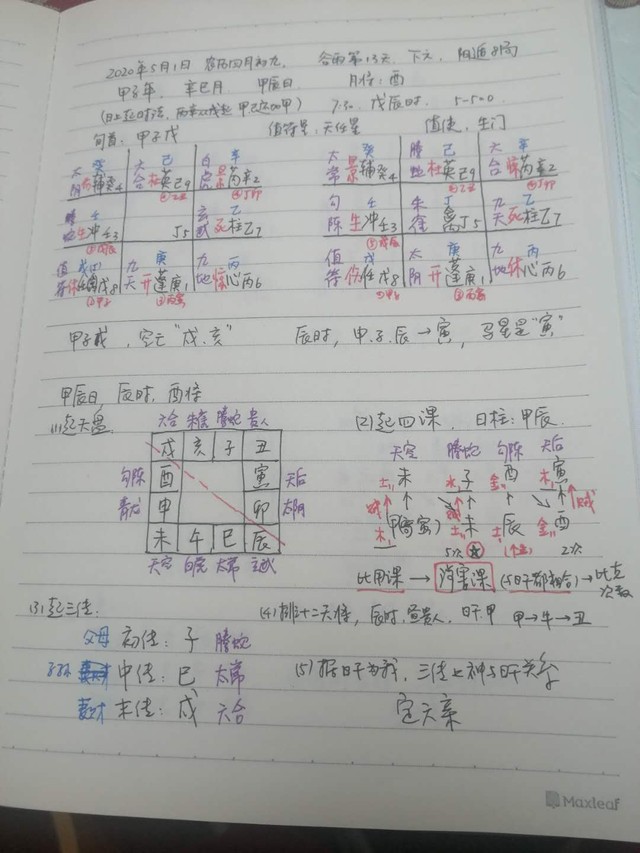 2020年5月1日 农历四月初九, 谷雨第13天, 下元, 阳遁8局
甲子年, 辛巳月 甲辰日. 月将: 酉
7:30. 戊辰时.
旬首: 甲子戊 值符星: 天任星 值使: 生门
太 癸 大 己 白 辛
阴 辅癸4 合 杜英己9 虎 景芮辛2
壬 玄 乙
生冲壬3 J5 武 死柱乙7
值 九 庚 九 丙
天 开蓬庚1 地 惊心丙6
太 癸 螣 己 六 辛
常 景辅癸4 蛇 杜英己9 合 惊芮辛2
勾 壬 朱 丁 九 乙
陈 生冲壬3 雀 禽J5 天 死柱乙7
值 戊 太 庚 九 丙
符 伤任戊8 阴 开蓬庚1 地 休心丙6
甲子戊, 空亡"戌.亥" 辰时, 申.子.辰→寅, 马星是"寅"
甲辰日, 辰时. 酉将
(1)起天盘
六合 朱雀 螣蛇 贵人
戌 亥 子 丑
勾陈 酉 寅 天后
青龙 申 卯 太阴
未 午 巳 辰
天空 白虎 太常 玄武
(2)起四课, 日柱: 甲辰.
天空 螣蛇 勾陈 天后
土 未 水 子 金 酉 木 寅
木 甲(寄寅) 土 未 土 辰 金 酉
5次 2次
比用课 → 涉害课 → 比克次数
(3)起三传:
父母 初传: 子 螣蛇
中传: 巳 太常
末传: 戌 六合
(4)排十二天将, 辰时.昼贵人, 日干:甲 甲→牛→丑
(5)据日干为我, 三传之神与日干关系
定六亲
Maxleaf